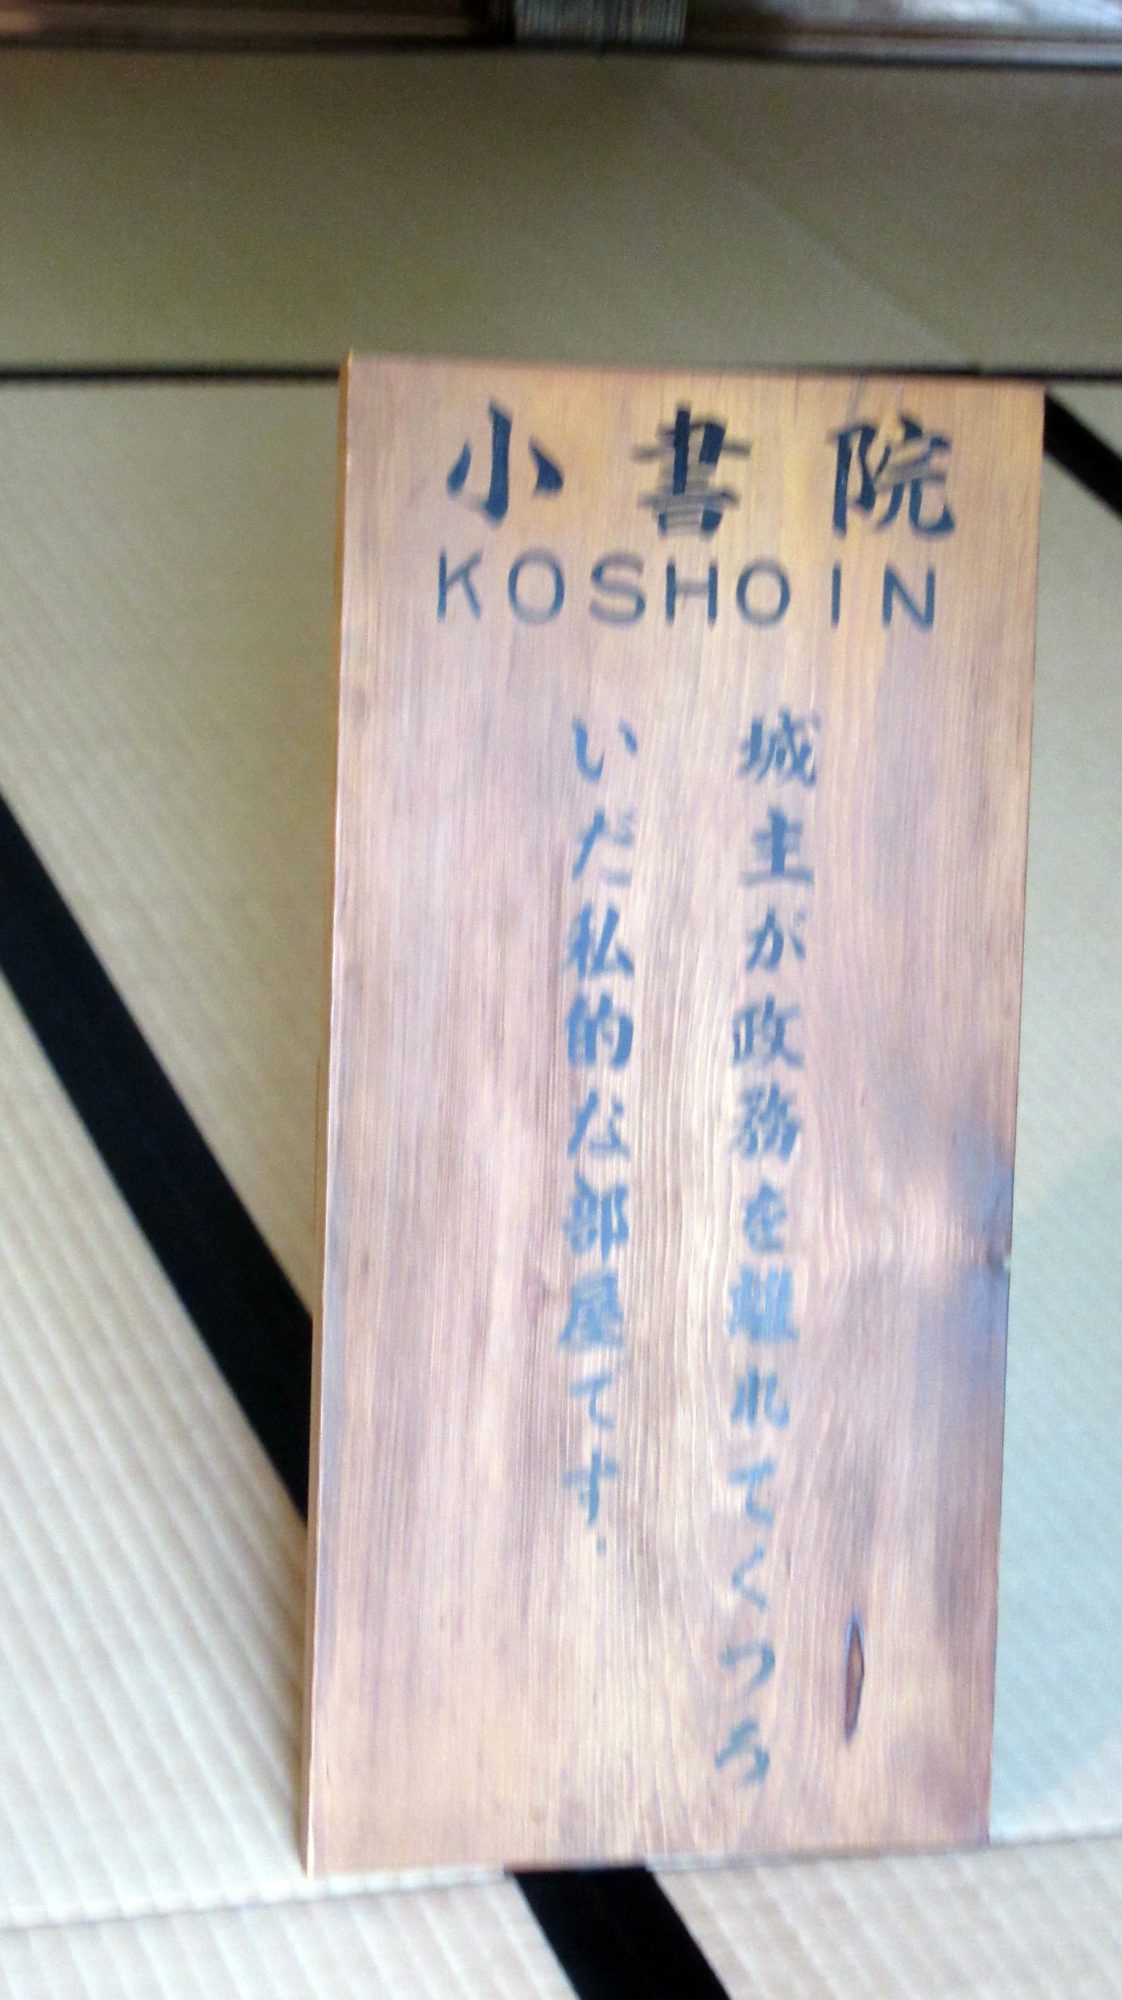 小書院
KOSHOIN
城主が政務を離れてくつろ
いだ私的な部屋です.